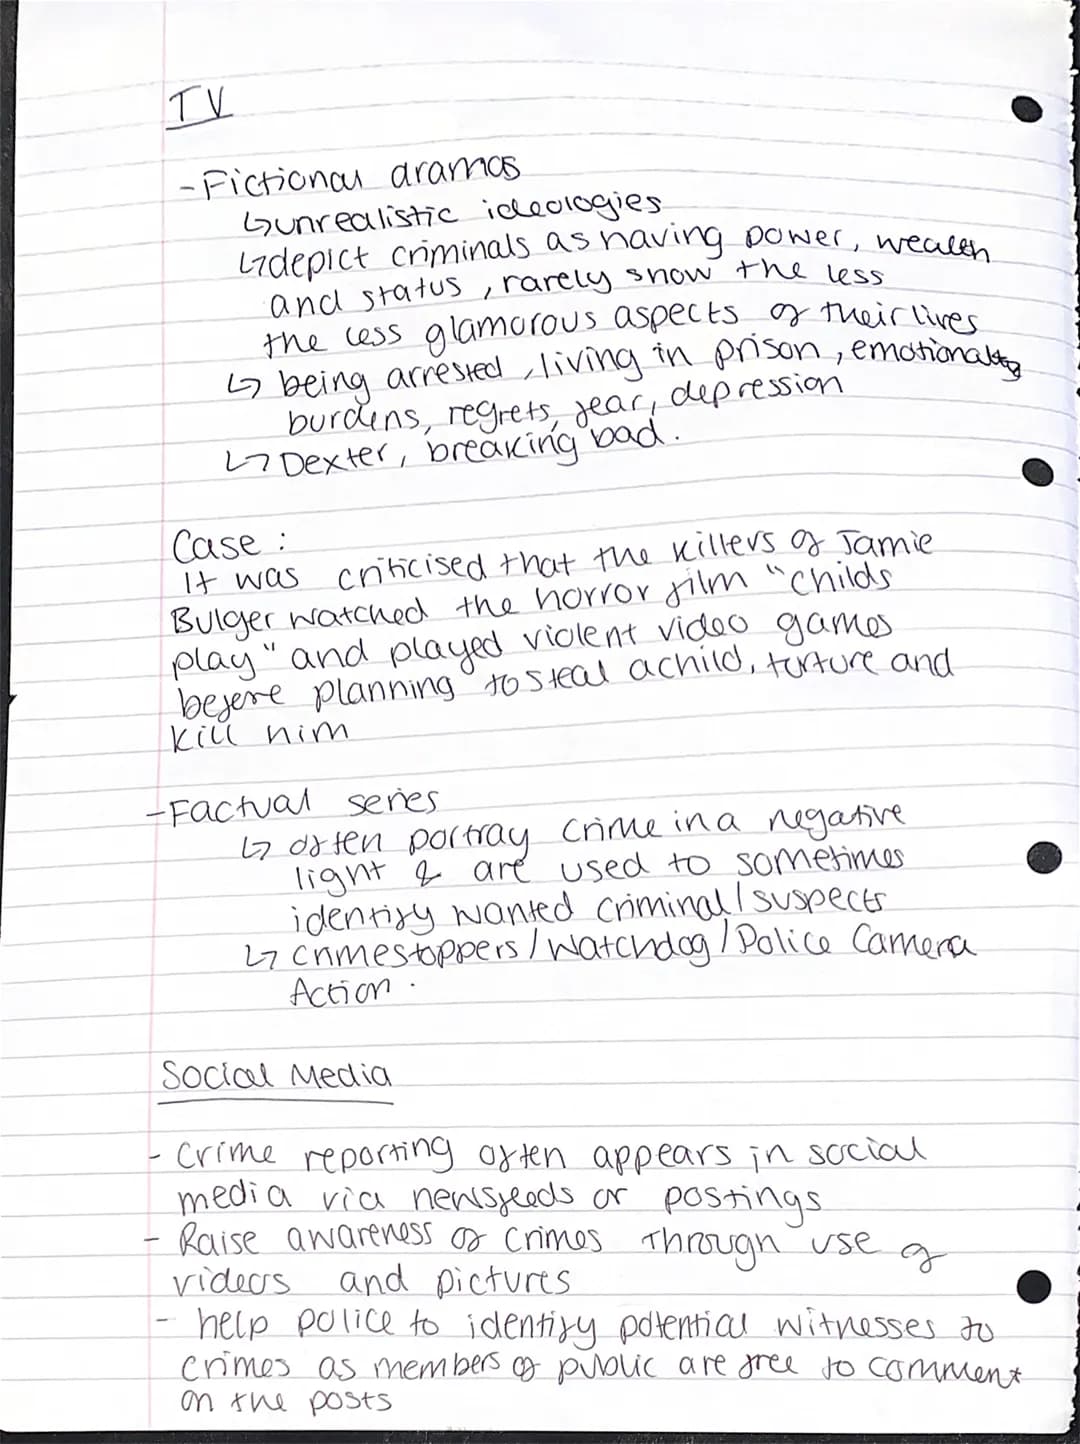 TV
- Fictional dramas
↳ unrealistic ideologies
↳ depict criminals as having power, wealth
and status, rarely show the less
the less glamorous aspects of their lives
↳ being arrested, living in prison, emotional
burdens, regrets, fear, depression
↳ Dexter, breaking bad.
Case :
It was criticised that the killers of Jamie
Bulger watched the horror film "childs
play" and played violent video games
before planning to steal a child, turture and
kill him
- Factual series
↳ often portray crime in a negative
light & are used to sometimes
identify wanted criminal/suspects
↳ crimestoppers/Watchdog/Police Camera
Action.
Social Media
- Crime reporting often appears in social
media via newsfeeds or postings
- Raise awareness of crimes through use of
videos and pictures
- help police to identify potential witnesses to
crimes as members of public are free to comment
on the posts